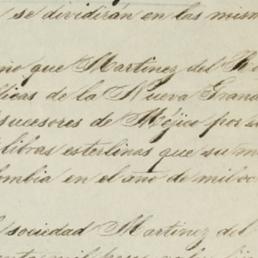 se dividirán en las mism
no que Martinez del
licas de la Nueva Grana
sucesores de Méjico por
libras esterlinas que su m
ombia en el año de mil oc
sociedad Martinez del